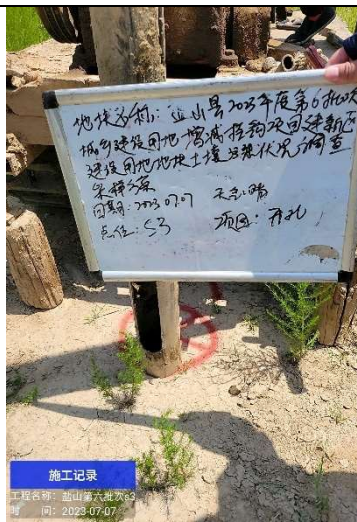 地块名称：盐山县2023年度第6批次
城乡建设用地增减挂钩项目建新区
建设用地地块土壤污染状况调查
采样
日期：2023.07.07 天气：晴
点位：S3 项目：开孔
施工记录
工程名称：盐山第六批次s3
时 间：2023-07-07